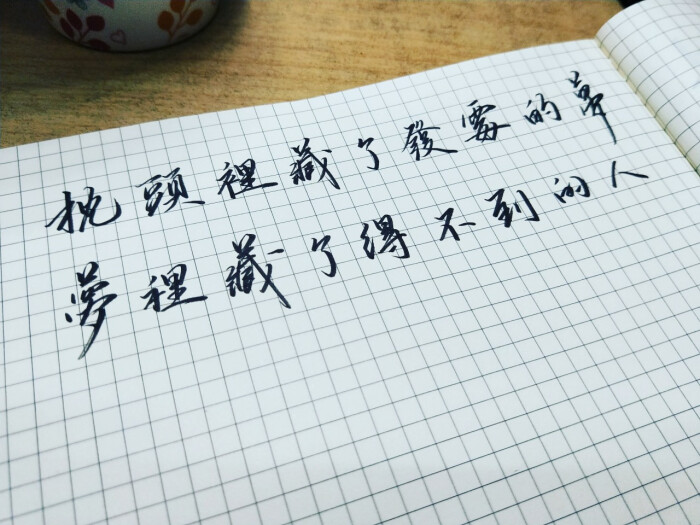 枕頭裡藏了發霉的夢
夢裡藏了得不到的人